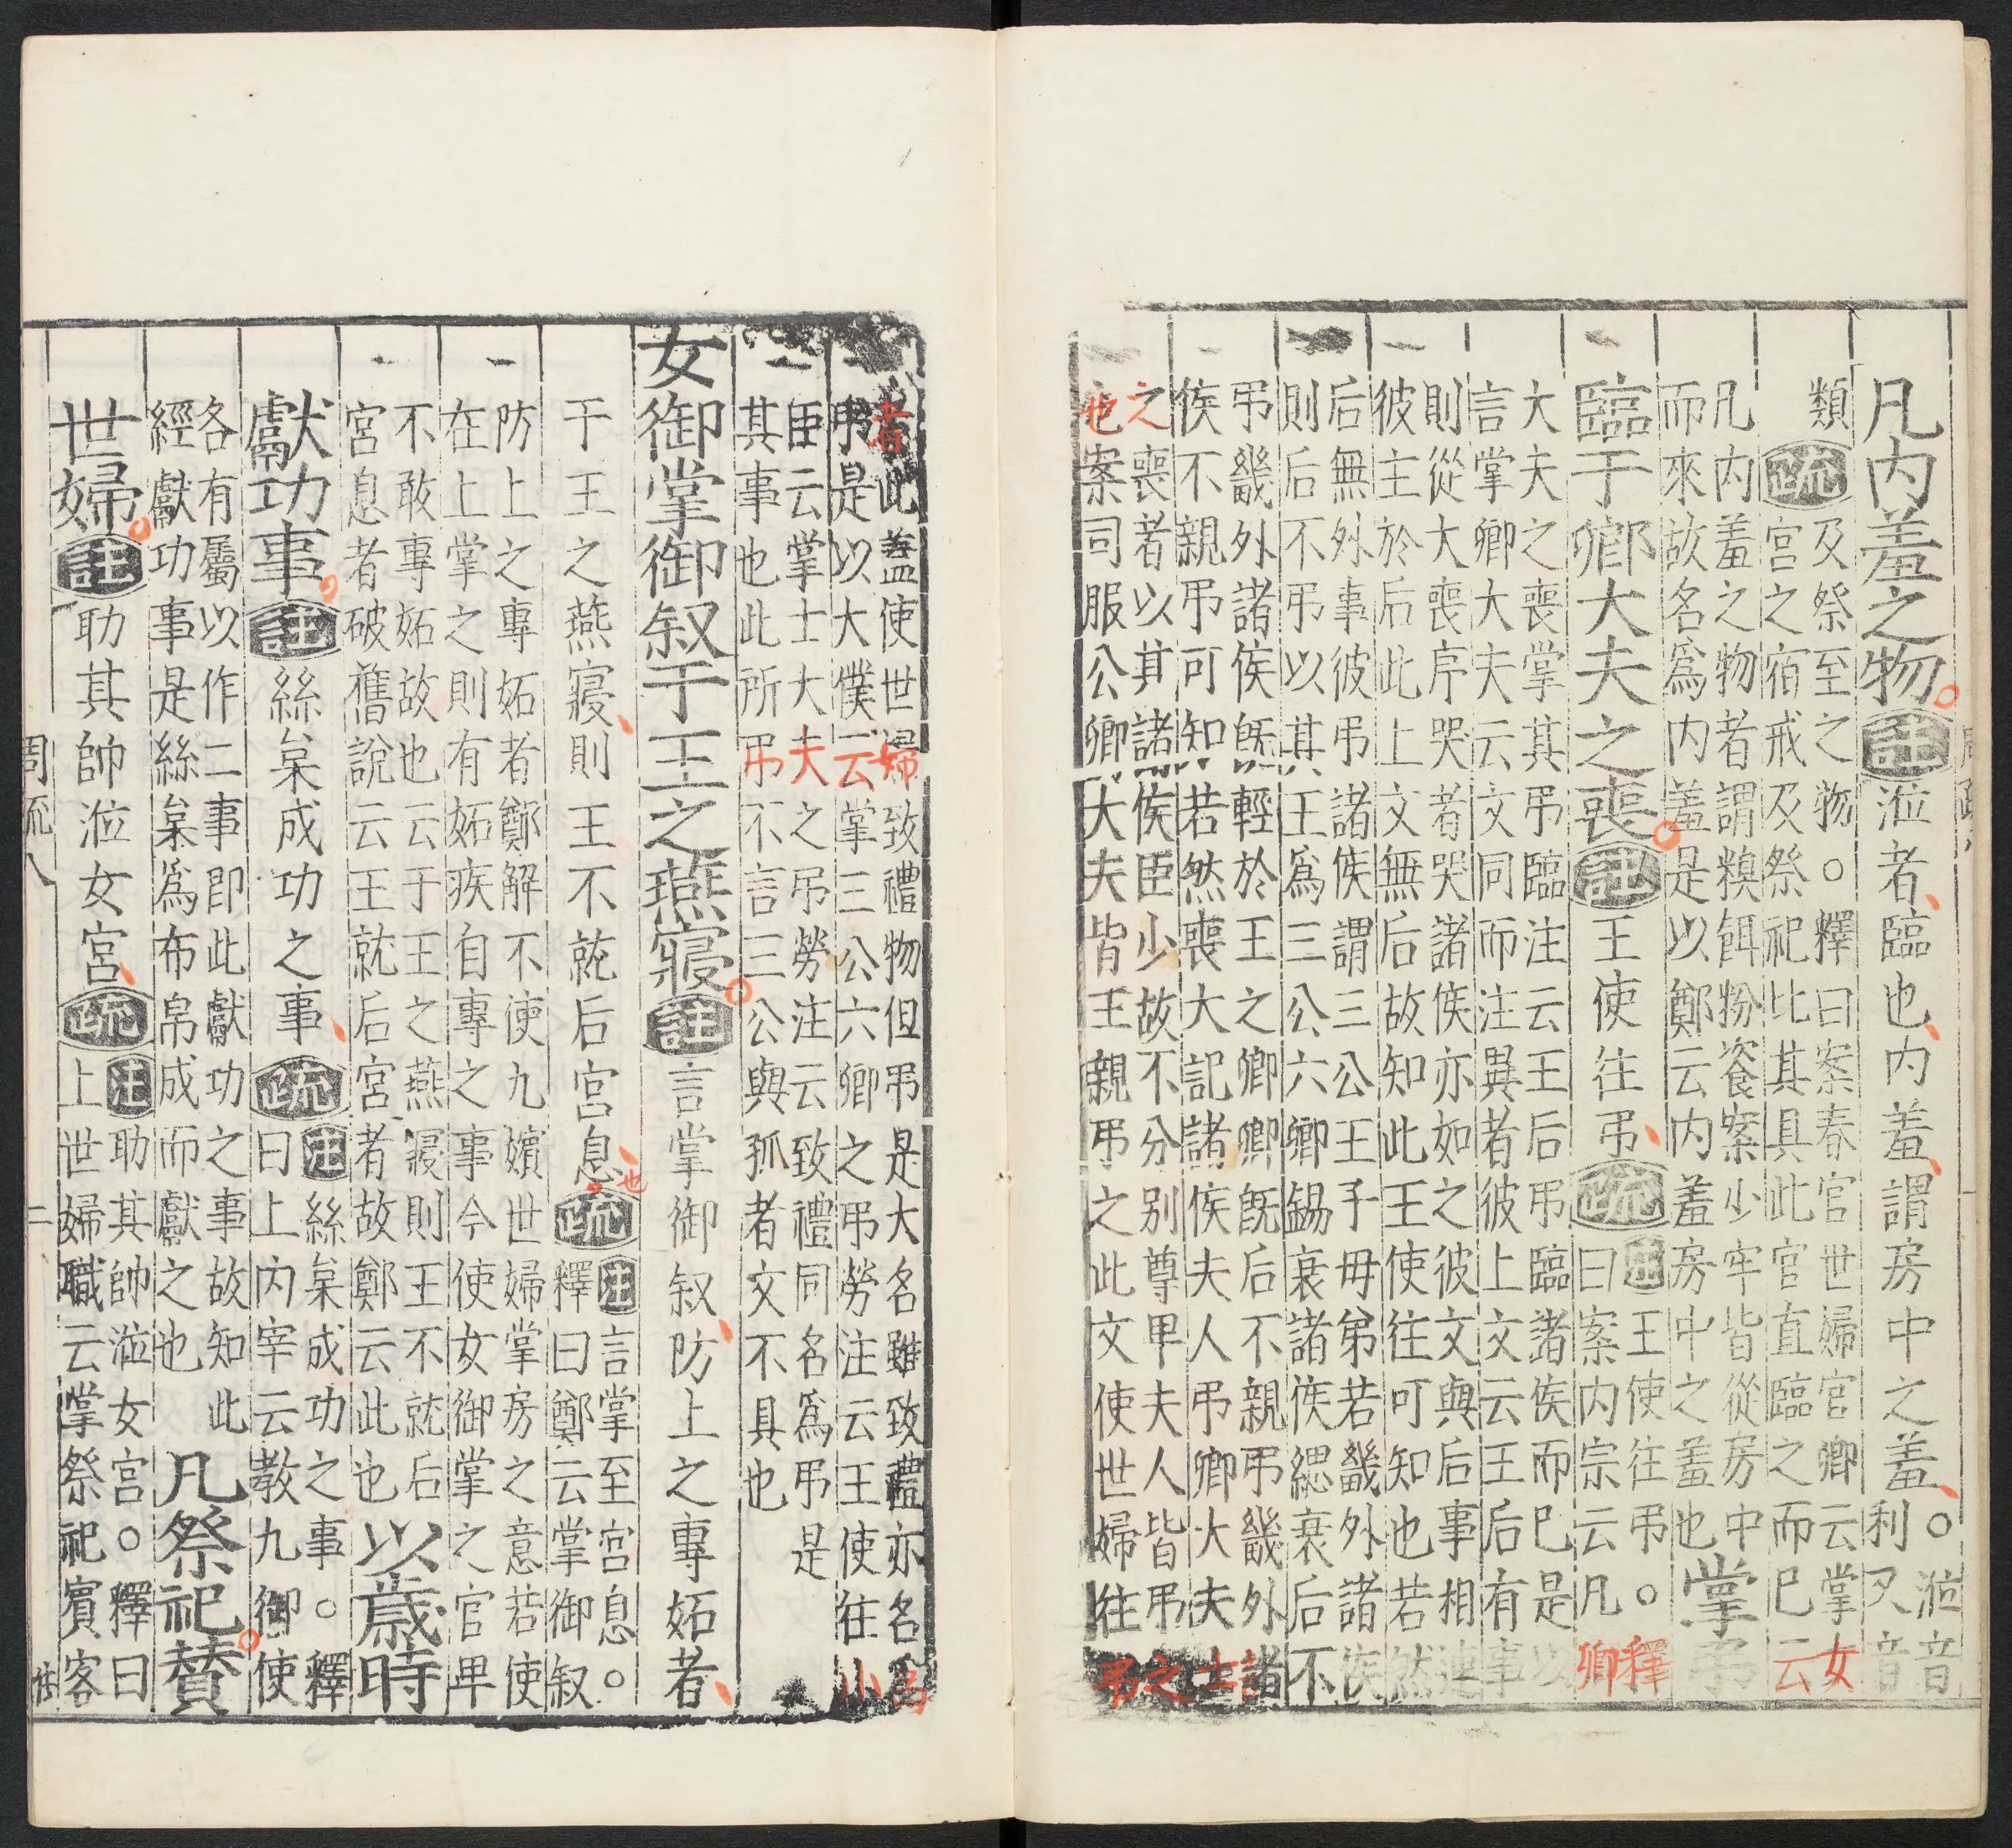 凡内羞之物註涖者臨也内羞謂房中之羞。涖音
利又音
類疏及祭至之物。釋曰案春官世婦官卿云掌女
宮之宿戒及祭祀比其具此官直臨之而巳云
凡内羞之物者謂糗餌粉餈案少牢皆從房中
而來故名爲内羞是以鄭云内羞房中之羞也掌
臨于卿大夫之喪註王使往弔疏注王使往弔。釋
曰案内宗云凡卿
大夫之喪掌其弔臨注云王后弔臨諸侯而巳是以
言掌卿大夫云文同而注異者彼上文云王后有事
則從大喪序哭者哭諸侯亦如之彼文與后事相連
彼主於后此上文無后故知此王使往可知也若然
后無外事彼弔諸侯謂三公王子母弟若畿外諸侯
則后不弔以其王爲三公六卿錫衰諸侯緦衰后不
弔畿外諸侯旣輕於王之卿卿旣后不親弔畿外諸
侯不親弔可知若然喪大記諸侯夫人弔卿大夫士
之喪者以其諸侯臣少故不分别尊卑夫人皆弔之
也案司服公卿大夫皆王親弔之此文使世婦往弔
者此蓋使世婦致禮物但弔是大名雖致禮亦名爲
弔是以大僕云掌三公六卿之弔勞注云王使往小
臣云掌士大夫之弔勞注云致禮同名爲弔是
其事也此所弔不言三公與孤者文不具也
女御掌御叙于王之燕寢註言掌御叙防上之專妬者
于王之燕寢則王不就后宮息也疏注言掌至宮息。
釋曰鄭云掌御叙
防上之專妬者鄭解不使九嬪世婦掌房之意若使
在上掌之則有妬疾自專之事今使女御掌之官卑
不敢專妬故也云于王之燕寢則王不就后
宮息者破舊說云王就后宮者故鄭云此也以歲時
獻功事註絲枲成功之事疏注絲枲成功之事。釋
曰上内宰云教九御使
各有屬以作二事即此獻功之事故知此
經獻功事是絲枲爲布帛成而獻之也凡祭祀贊
世婦註助其帥涖女宮疏注助其帥涖女宮。釋曰
上世婦職云掌祭祀賓客
周疏八
二